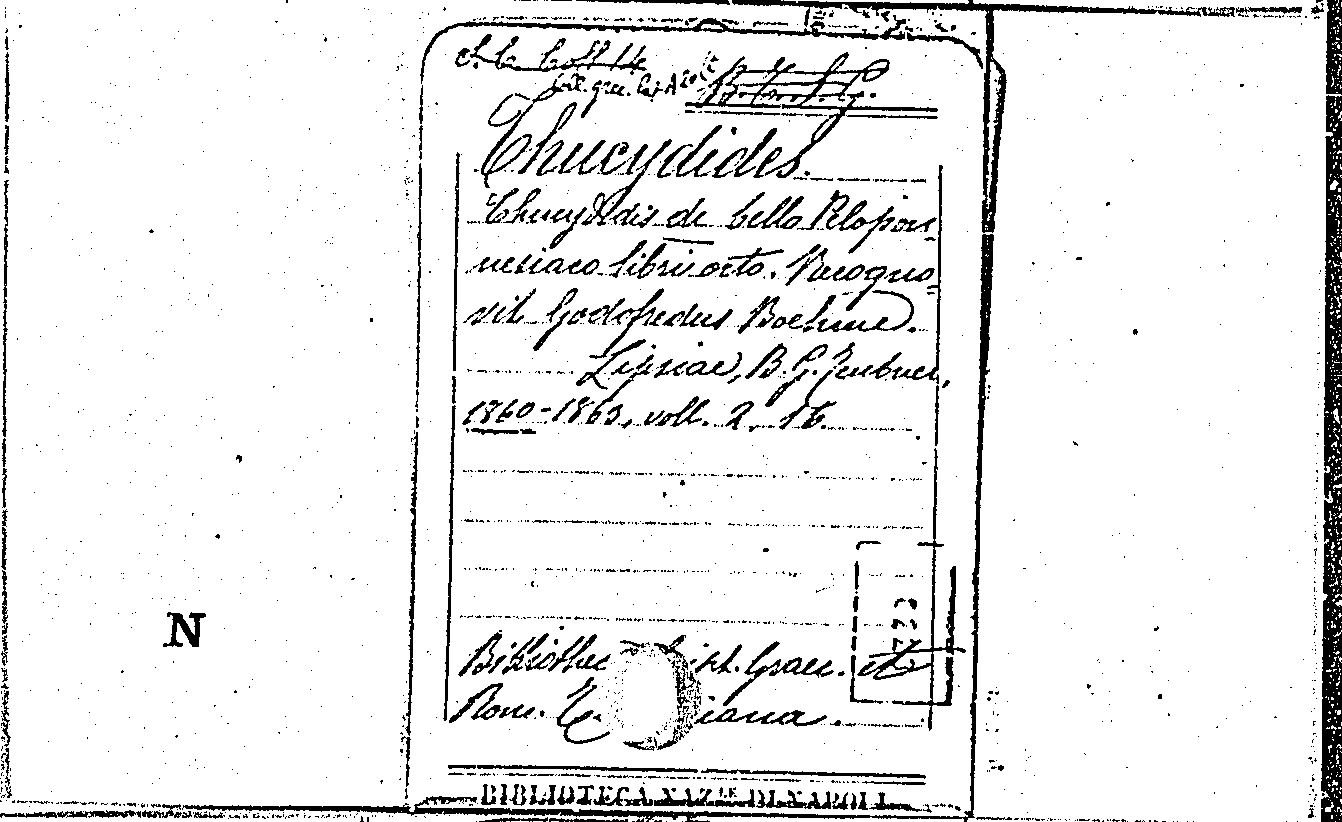 S. C. Coll 14
Coll. grec. lat. A
Thucydides.
Thucydidis de bello Pelopon-
nesiaco libri octo. Recogno-
vit Godofredus Boehme.
Lipsiae, B. G. Teubner,
1860-1863, voll. 2, 16.
Bibliothec ript. Graec. et
Rom. T iana.
BIBLIOTECA NAZ.LE DI NAPOLI
N